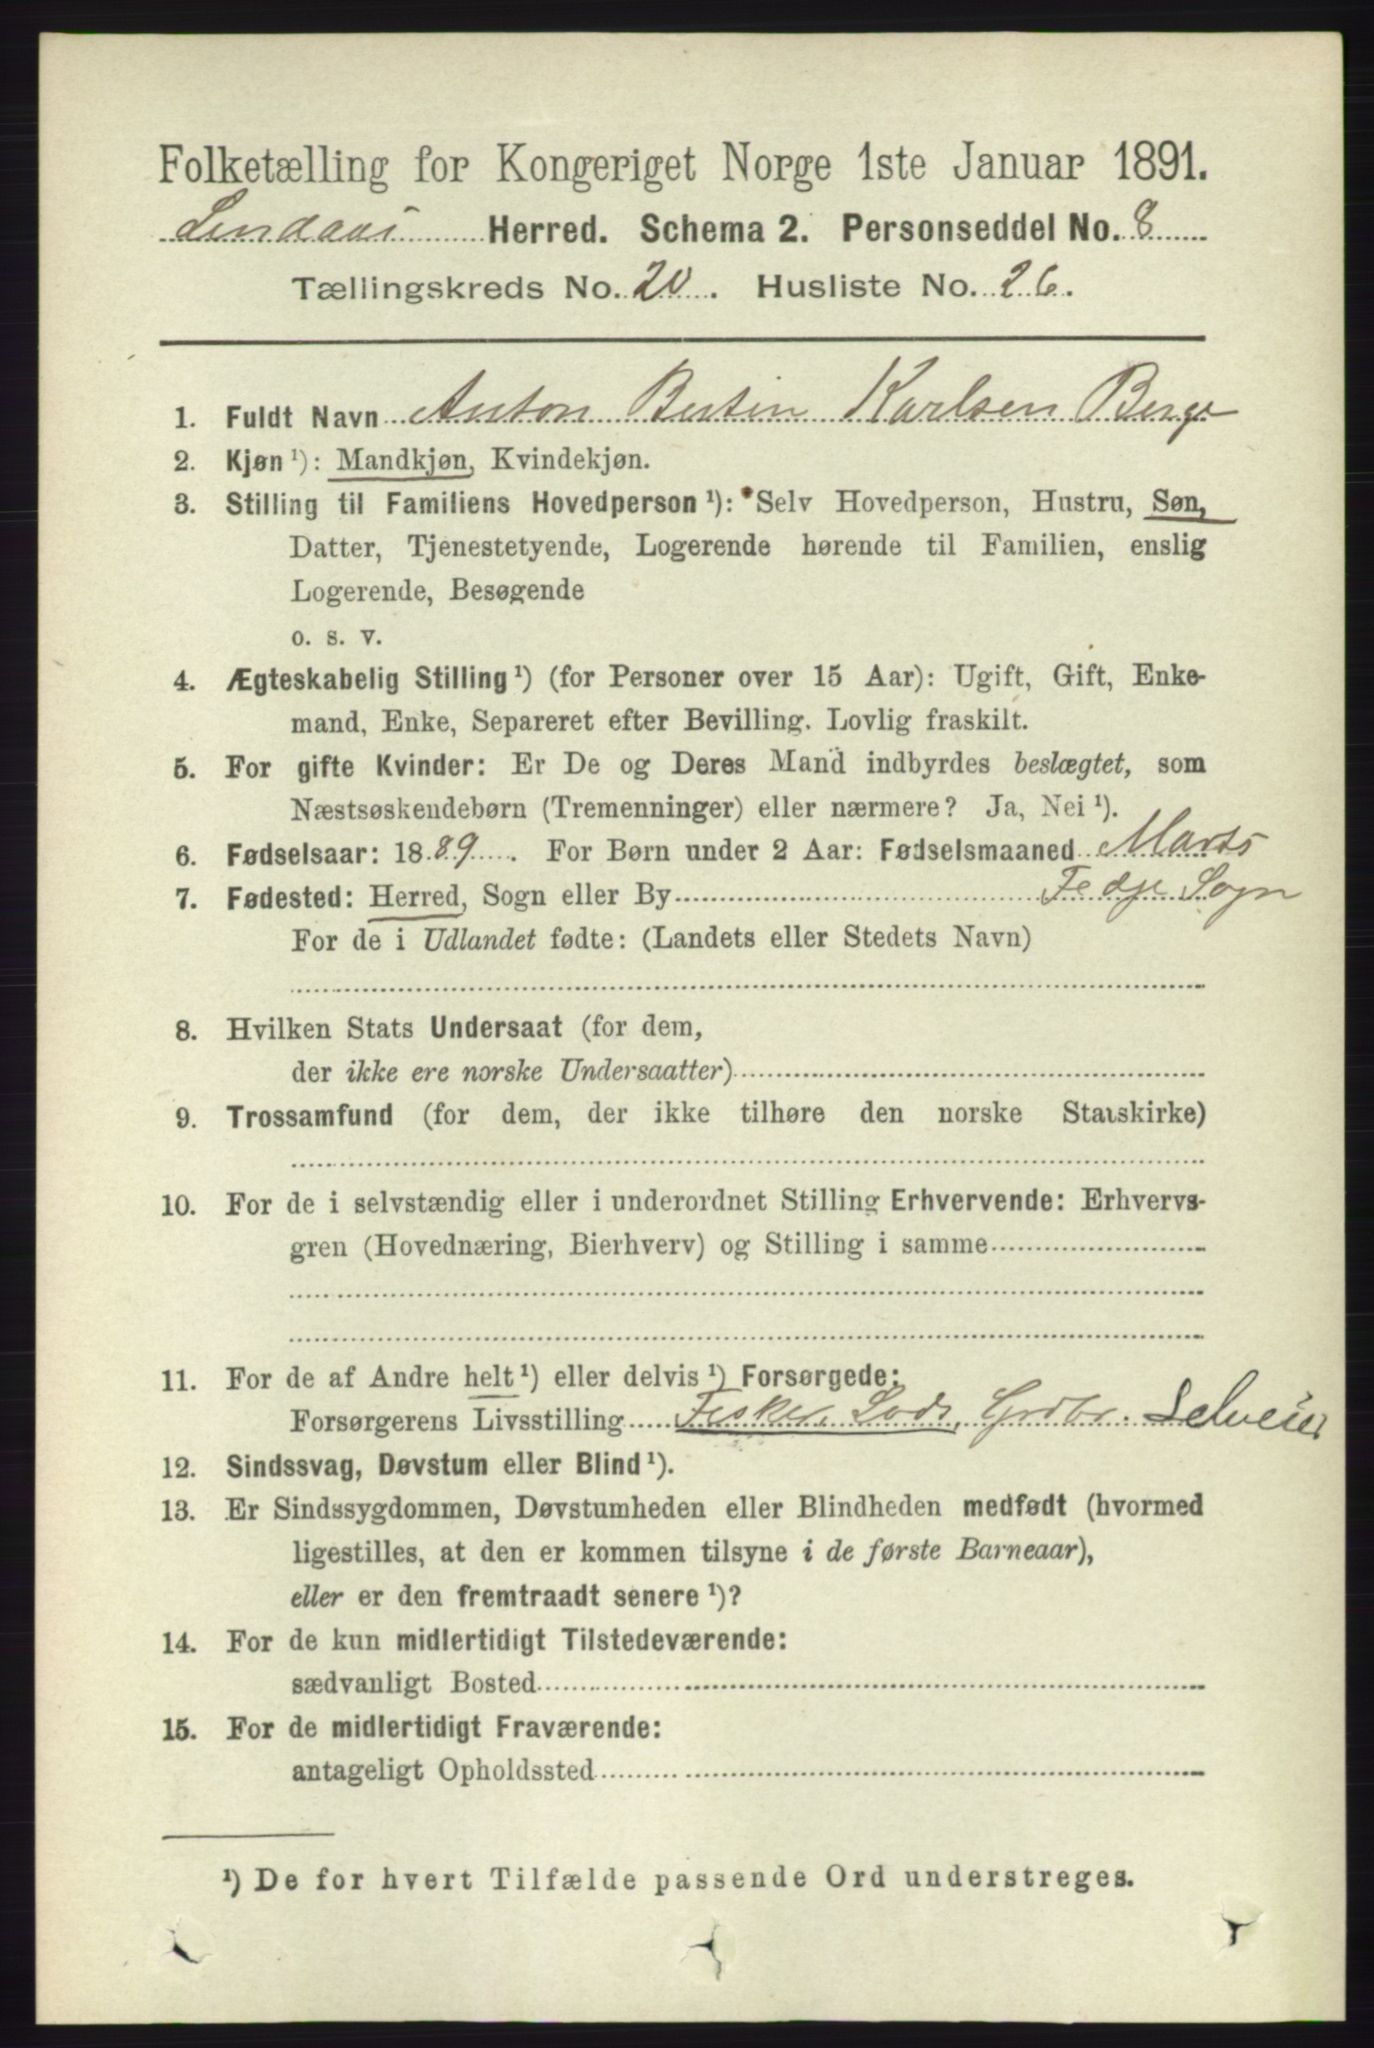 Folketælling for Kongeriget Norge 1ste Januar 1891.
Lindaas Herred. Schema 2. Personseddel No. 8
Tællingskreds No. 20. Husliste No. 26.
1. Fuldt Navn Anton Bertin Karlsen Berge
2. Kjøn ¹): Mandkjøn, Kvindekjøn.
3. Stilling til Familiens Hovedperson ¹): Selv Hovedperson, Hustru, Søn,
Datter, Tjenestetyende, Logerende hørende til Familien, enslig
Logerende, Besøgende
o. s. v.
4. Ægteskabelig Stilling ¹) (for Personer over 15 Aar): Ugift, Gift, Enke-
mand, Enke, Separeret efter Bevilling. Lovlig fraskilt.
5. For gifte Kvinder: Er De og Deres Mand indbyrdes beslægtet, som
Næstsøskendebørn (Tremenninger) eller nærmere? Ja, Nei ¹).
6. Fødselsaar: 1889. For Børn under 2 Aar: Fødselsmaaned Marts
7. Fødested: Herred, Sogn eller By Fedje Sogn
For de i Udlandet fødte: (Landets eller Stedets Navn)
8. Hvilken Stats Undersaat (for dem,
der ikke ere norske Undersaatter)
9. Trossamfund (for dem, der ikke tilhøre den norske Statskirke)
10. For de i selvstændig eller i underordnet Stilling Erhvervende: Erhvervs-
gren (Hovednæring, Bierhverv) og Stilling i samme
11. For de af Andre helt ¹) eller delvis ¹) Forsørgede:
Forsørgerens Livsstilling Fisker, Lods, Grdbr. Selveier
12. Sindssvag, Døvstum eller Blind ¹).
13. Er Sindssygdommen, Døvstumheden eller Blindheden medfødt (hvormed
ligestilles, at den er kommen tilsyne i de første Barneaar),
eller er den fremtraadt senere ¹)?
14. For de kun midlertidigt Tilstedeværende:
sædvanligt Bosted
15. For de midlertidigt Fraværende:
antageligt Opholdssted
¹) De for hvert Tilfælde passende Ord understreges.